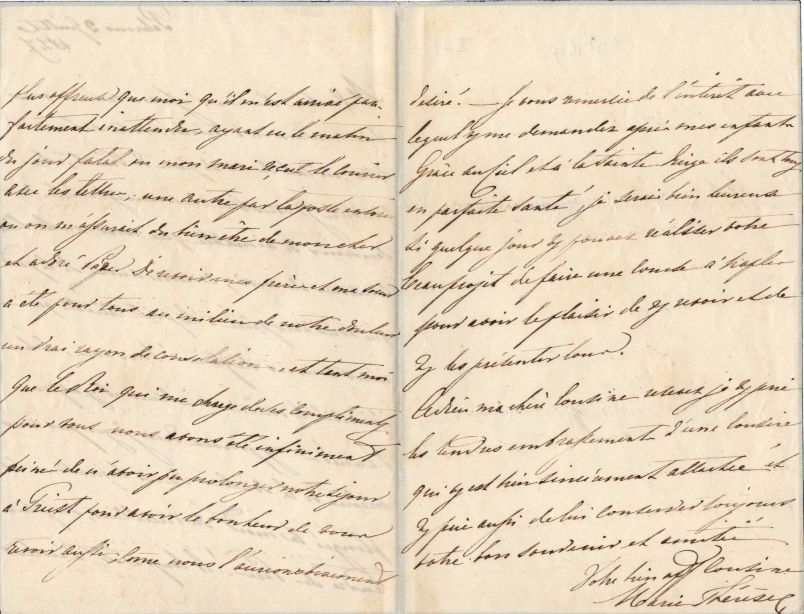 plus affreux que moi qu'il m'est arrivé par-
faitement inattendu, ayant eu le matin
du jour fatal où mon mari reçut le courier
avec les lettres, une autre par la poste
où on m'assurait du bien être de mon cher
et adoré Papa. De revoir mes frères et ma sœur
a été pour tous au milieu de notre douleur
un vrai rayon de consolation, et tant moi
que le Roi qui me charge de ses compliments
pour vous nous avons été infiniment
peiné de n'avoir pu prolonger notre séjour
à Triest pour avoir le bonheur de vous
revoir aussi, comme nous l'aurions vivement
désiré. — Je vous remercie de l'intérêt avec
lequel vous me demandez après mes enfants
Grâce au Ciel et à la Sainte Vierge ils sont tous
en parfaite santé, je serais bien heureuse
si quelque jour vous pouviez réaliser votre
beau projet de faire une course à Naples
pour avoir le plaisir de vous revoir et de
vous les présenter tous.
Adieu ma chère Cousine recevez je vous prie
les tendres embrassement d'une Cousine
qui vous est bien sincèrement attachée et
vous prie aussi de lui conserver toujours
votre bon souvenir et amitié
Votre bien aff Cousine
Marie Thérèse